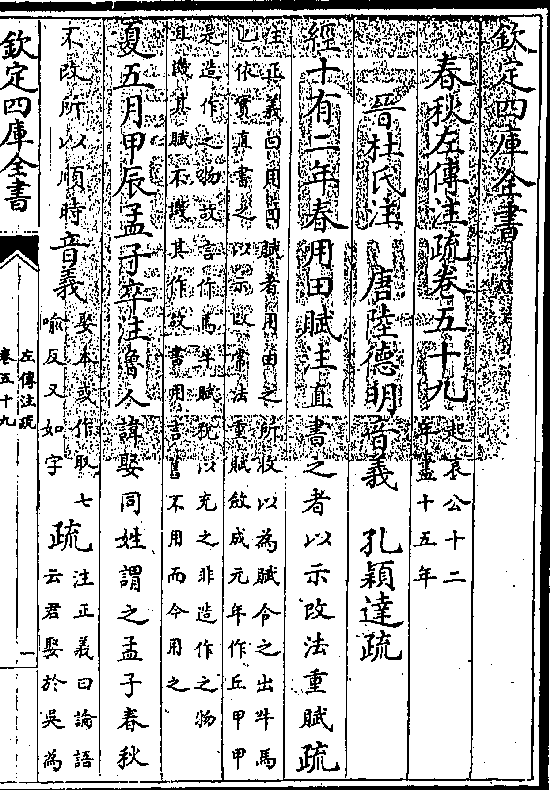 欽定四庫全書
春秋左傳注疏卷五十九
起哀公十二
年盡十五年
晉杜氏注　唐陸德明音義　孔穎達疏
經十有二年春用田賦注直書之者以示改法重賦疏
注正義曰用田賦者用田之所收以為賦令之出牛馬
也依實直書之以示改常法重賦斂成元年作丘甲甲
是造作之物故言作為牛賦既以充之非造作之物
且譏其賦不譏其作故書用言舊不用而今用之
夏五月甲辰孟子卒注魯人諱娶同姓謂之孟子春秋
不改所以順時音義
娶本或作取七
喻反又如字
疏
注正義曰論語
云君娶於吳為
欽定四庫全書
左傳注疏
卷五十九
一